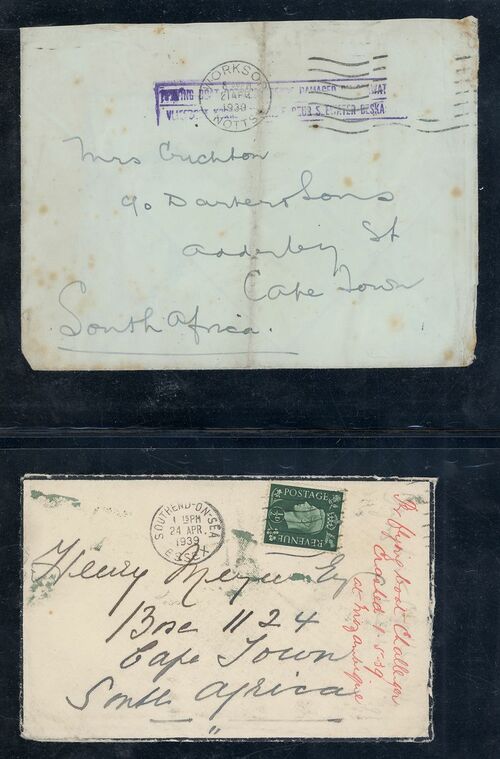 WORKSOP
21 APR
1939
NOTTS
DAMAGED
Mrs Crichton
c/o Darter & Sons
Adderley St
Cape Town
South Africa.
SOUTHEND-ON-SEA
1 15PM
24 APR.
1939
ESSEX
POSTAGE
REVENUE
Henry Meyer Esq
Box 1124
Cape Town
South Africa
flying boat Challenger
Crashed 1-5-39
at Mozambique